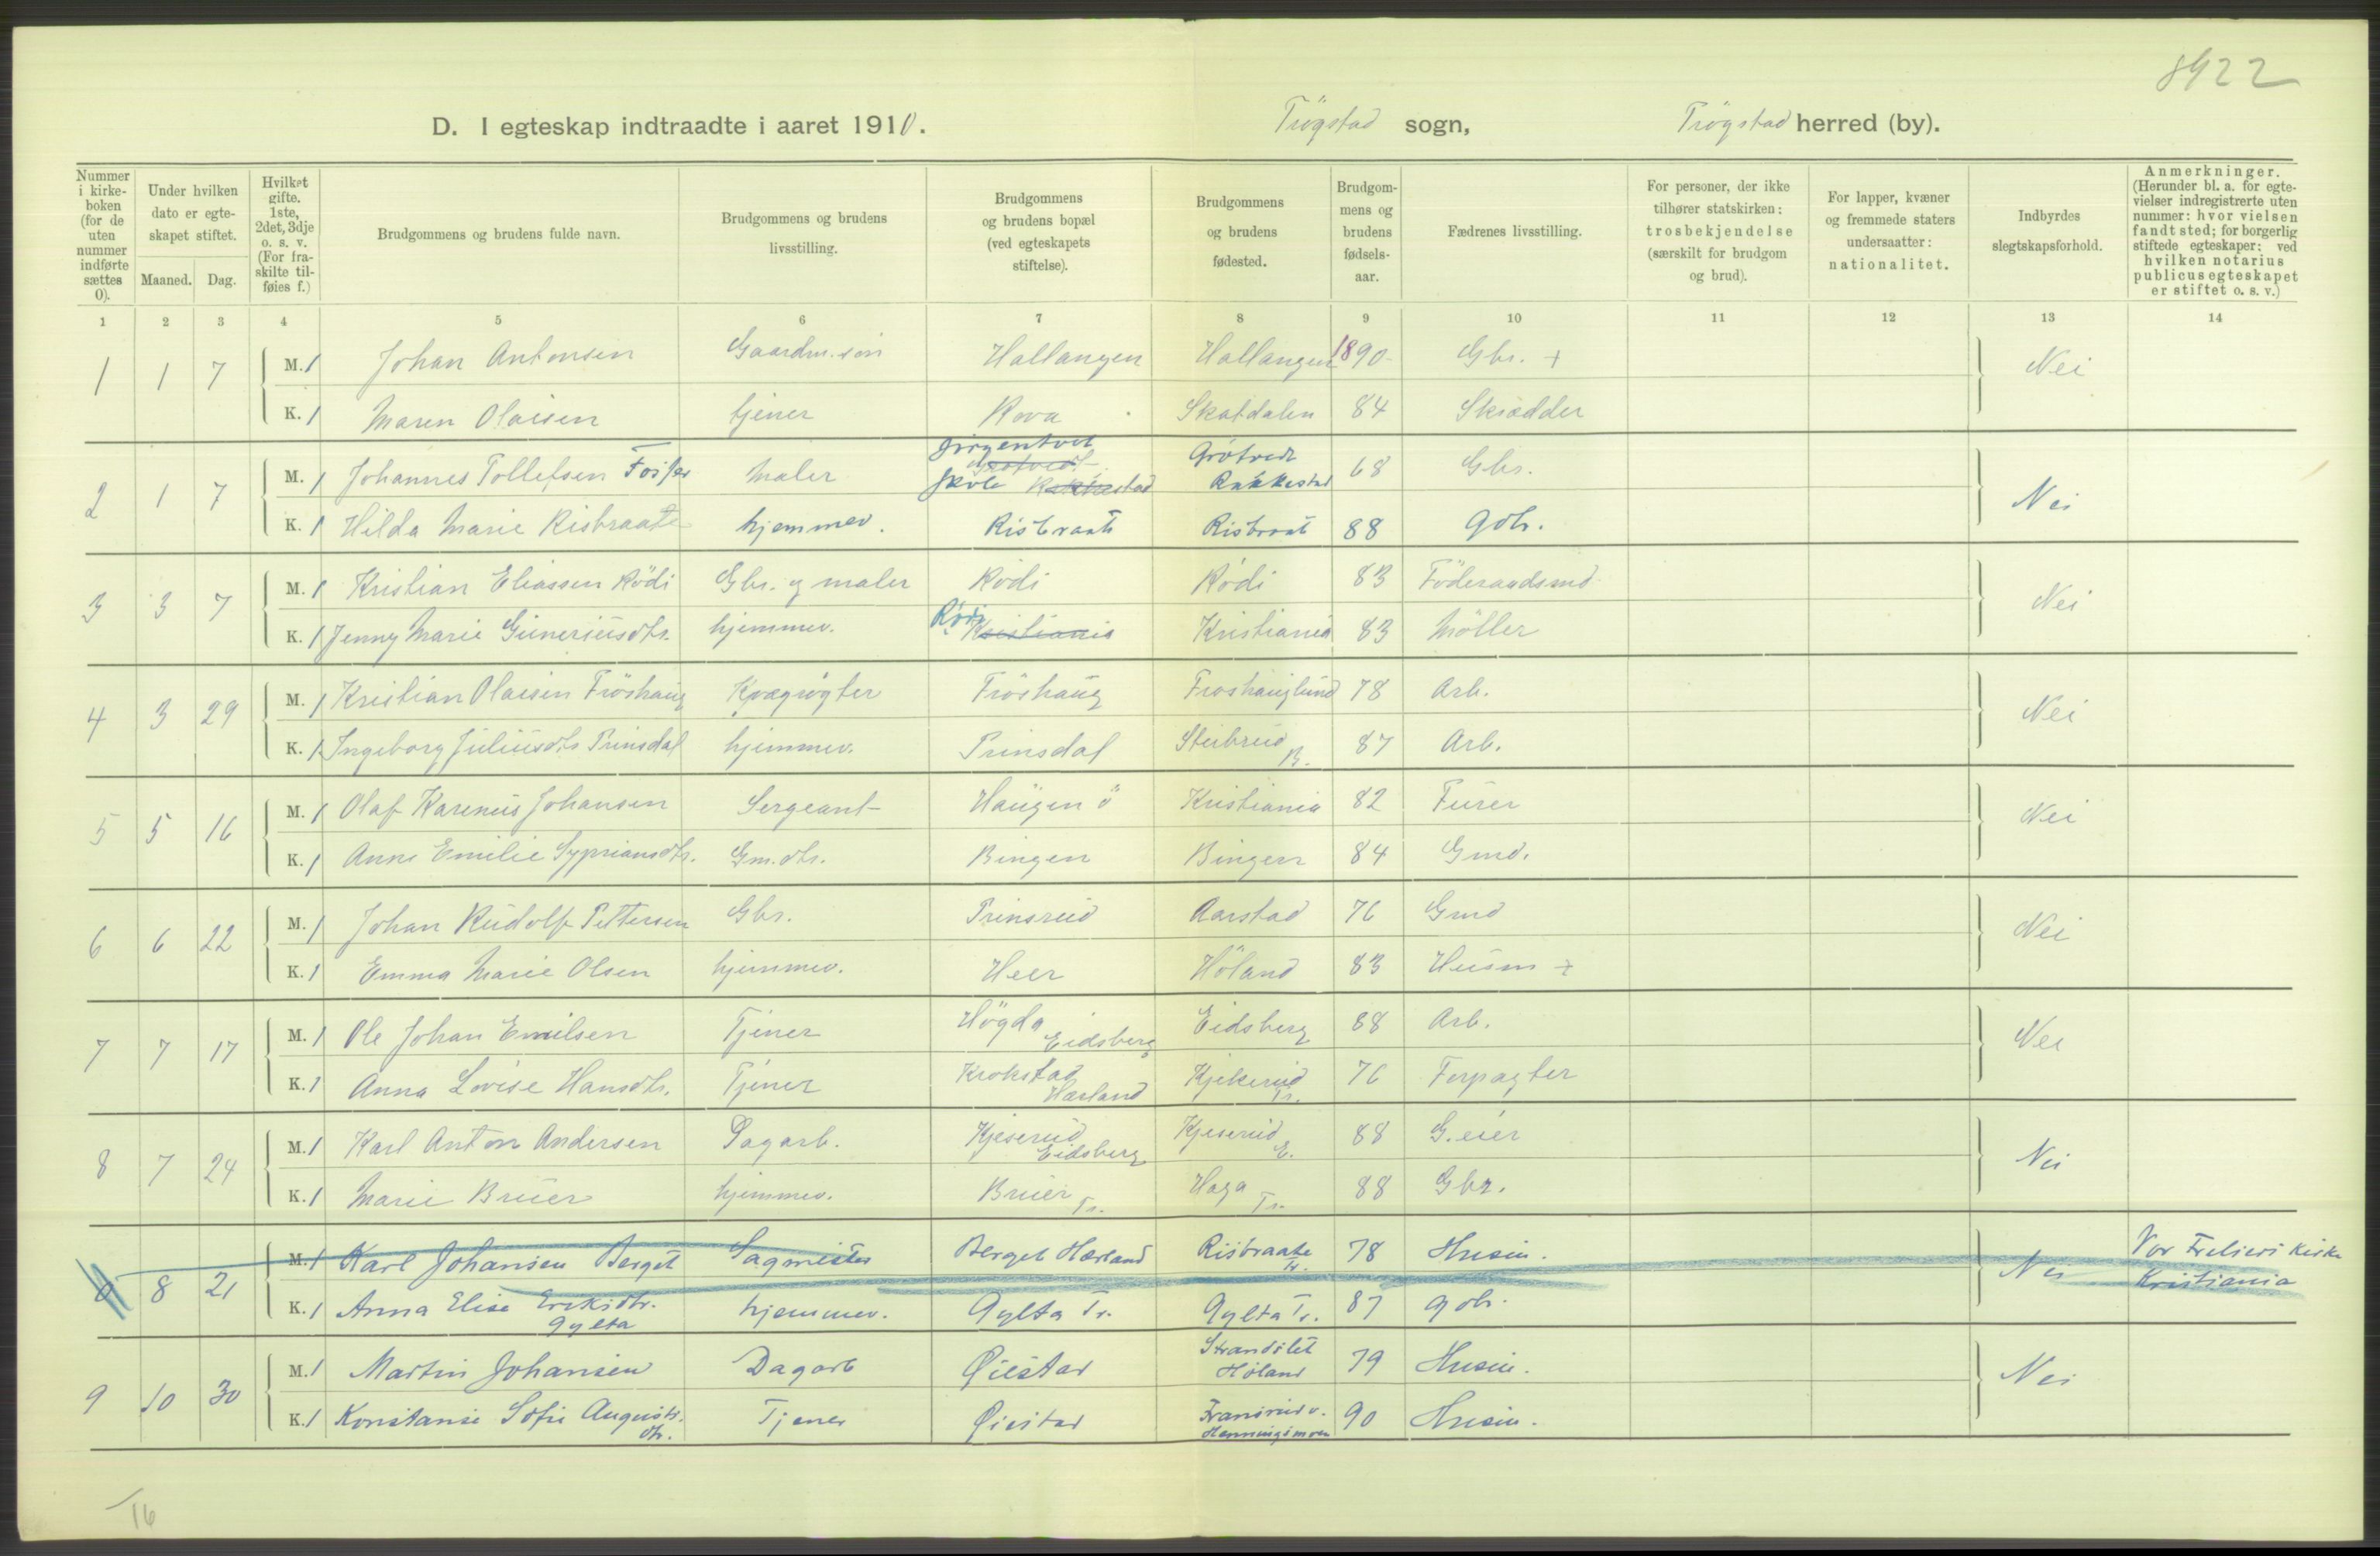 8922
D. I egteskap indtraadte i aaret 1910. Trögstad sogn, Trögstad herred (by).
Nummer i kirkeboken (for de uten nummer indførte sættes 0). Under hvilken dato er egteskapet stiftet. Maaned. Dag. Hvilket gifte. 1ste, 2det, 3dje o. s. v. (For fraskilte tilføies f.) Brudgommens og brudens fulde navn. Brudgommens og brudens livsstilling. Brudgommens og brudens bopæl (ved egteskapets stiftelse). Brudgommens og brudens fødested. Brudgommens og brudens fødselsaar. Fædrenes livsstilling. For personer, der ikke tilhører statskirken: trosbekjendelse (særskilt for brudgom og brud). For lapper, kvæner og fremmede staters undersaatter: nationalitet. Indbyrdes slegtskapsforhold. Anmerkninger. (Herunder bl. a. for egtevielser indregistrerte uten nummer: hvor vielsen fandt sted; for borgerlig stiftede egteskaper: ved hvilken notarius publicus egteskapet er stiftet o. s. v.)
1 2 3 4 5 6 7 8 9 10 11 12 13 14
1 1 7 M. 1 Johan Antonsen Gaardm. sön Hallangen Hallangen 1890 Gbr. + Nei
K. 1 Maren Olaisen tjener Rova Skatdalen 84 Skrædder
2 1 7 M. 1 Johannes Tollefsen Fosser Maler Jirgentvet Skole Grøtvedt Rakkestad 68 Gbr. Nei
K. 1 Hilda Marie Risbraate hjemmev. Risbraate Risbraat 88 Gbr.
3 3 7 M. 1 Kristian Eliassen Rödi Gbr. og maler Rödi Rödi 83 Föderaadsmd. Nei
K. 1 Jenny Marie Guneriusdtr. hjemmev. Rødi Kristiania Kristiania 83 Möller
4 3 29 M. 1 Kristian Olaisen Fröshaug Kvægrögter Fröshaug Froshauglund 78 Arb. Nei
K. 1 Ingeborg Juliusdtr Prinsdal hjemmev. Prinsdal B. 87 Arb.
5 5 16 M. 1 Olaf Karenius Johansen Sergeant Haugen ö Kristiania 82 Furer Nei
K. 1 Anne Emilie Sypriansdtr. Gm. dtr. Bingen Bingen 84 Gmd.
6 6 22 M. 1 Johan Rudolf Pettersen Gbr. Prinsrud Aarstad 76 Gmd Nei
K. 1 Emma Marie Olsen hjemmev. Heer Höland 83 Husm +
7 7 17 M. 1 Ole Johan Emilsen Tjener Högda Eidsberg Eidsberg 88 Arb. Nei
K. 1 Anna Lovise Hansdtr. Tjener Krokstad Hærland Kjekerud Tr. 76 Forpagter
8 7 24 M. 1 Karl Anton Andersen Dagarb. Kjeserud Eidsberg Kjeserud E. 88 G. eier Nei
K. 1 Marie Bruer hjemmev. Bruer Tr. Haga Tr. 88 Gbr.
0 8 21 M. 1 Karl Johansen Berget Sagmester Berget Hærland Risbraate Tr. 78 Husm. Nei Vor Frelsers Kirke Kristiania
K. 1 Anna Elise Eriksdtr. Gylta hjemmev. Gylta Tr. Gylta Tr. 87 Gbr.
9 10 30 M. 1 Martin Johansen Dagarb Øiestad Strandslet Høland 79 Husm. Nei
K. 1 Konstanse Sofie Augustsdtr. Tjener Øiestad Fransrud v. Henningsmoen 90 Husm.
16